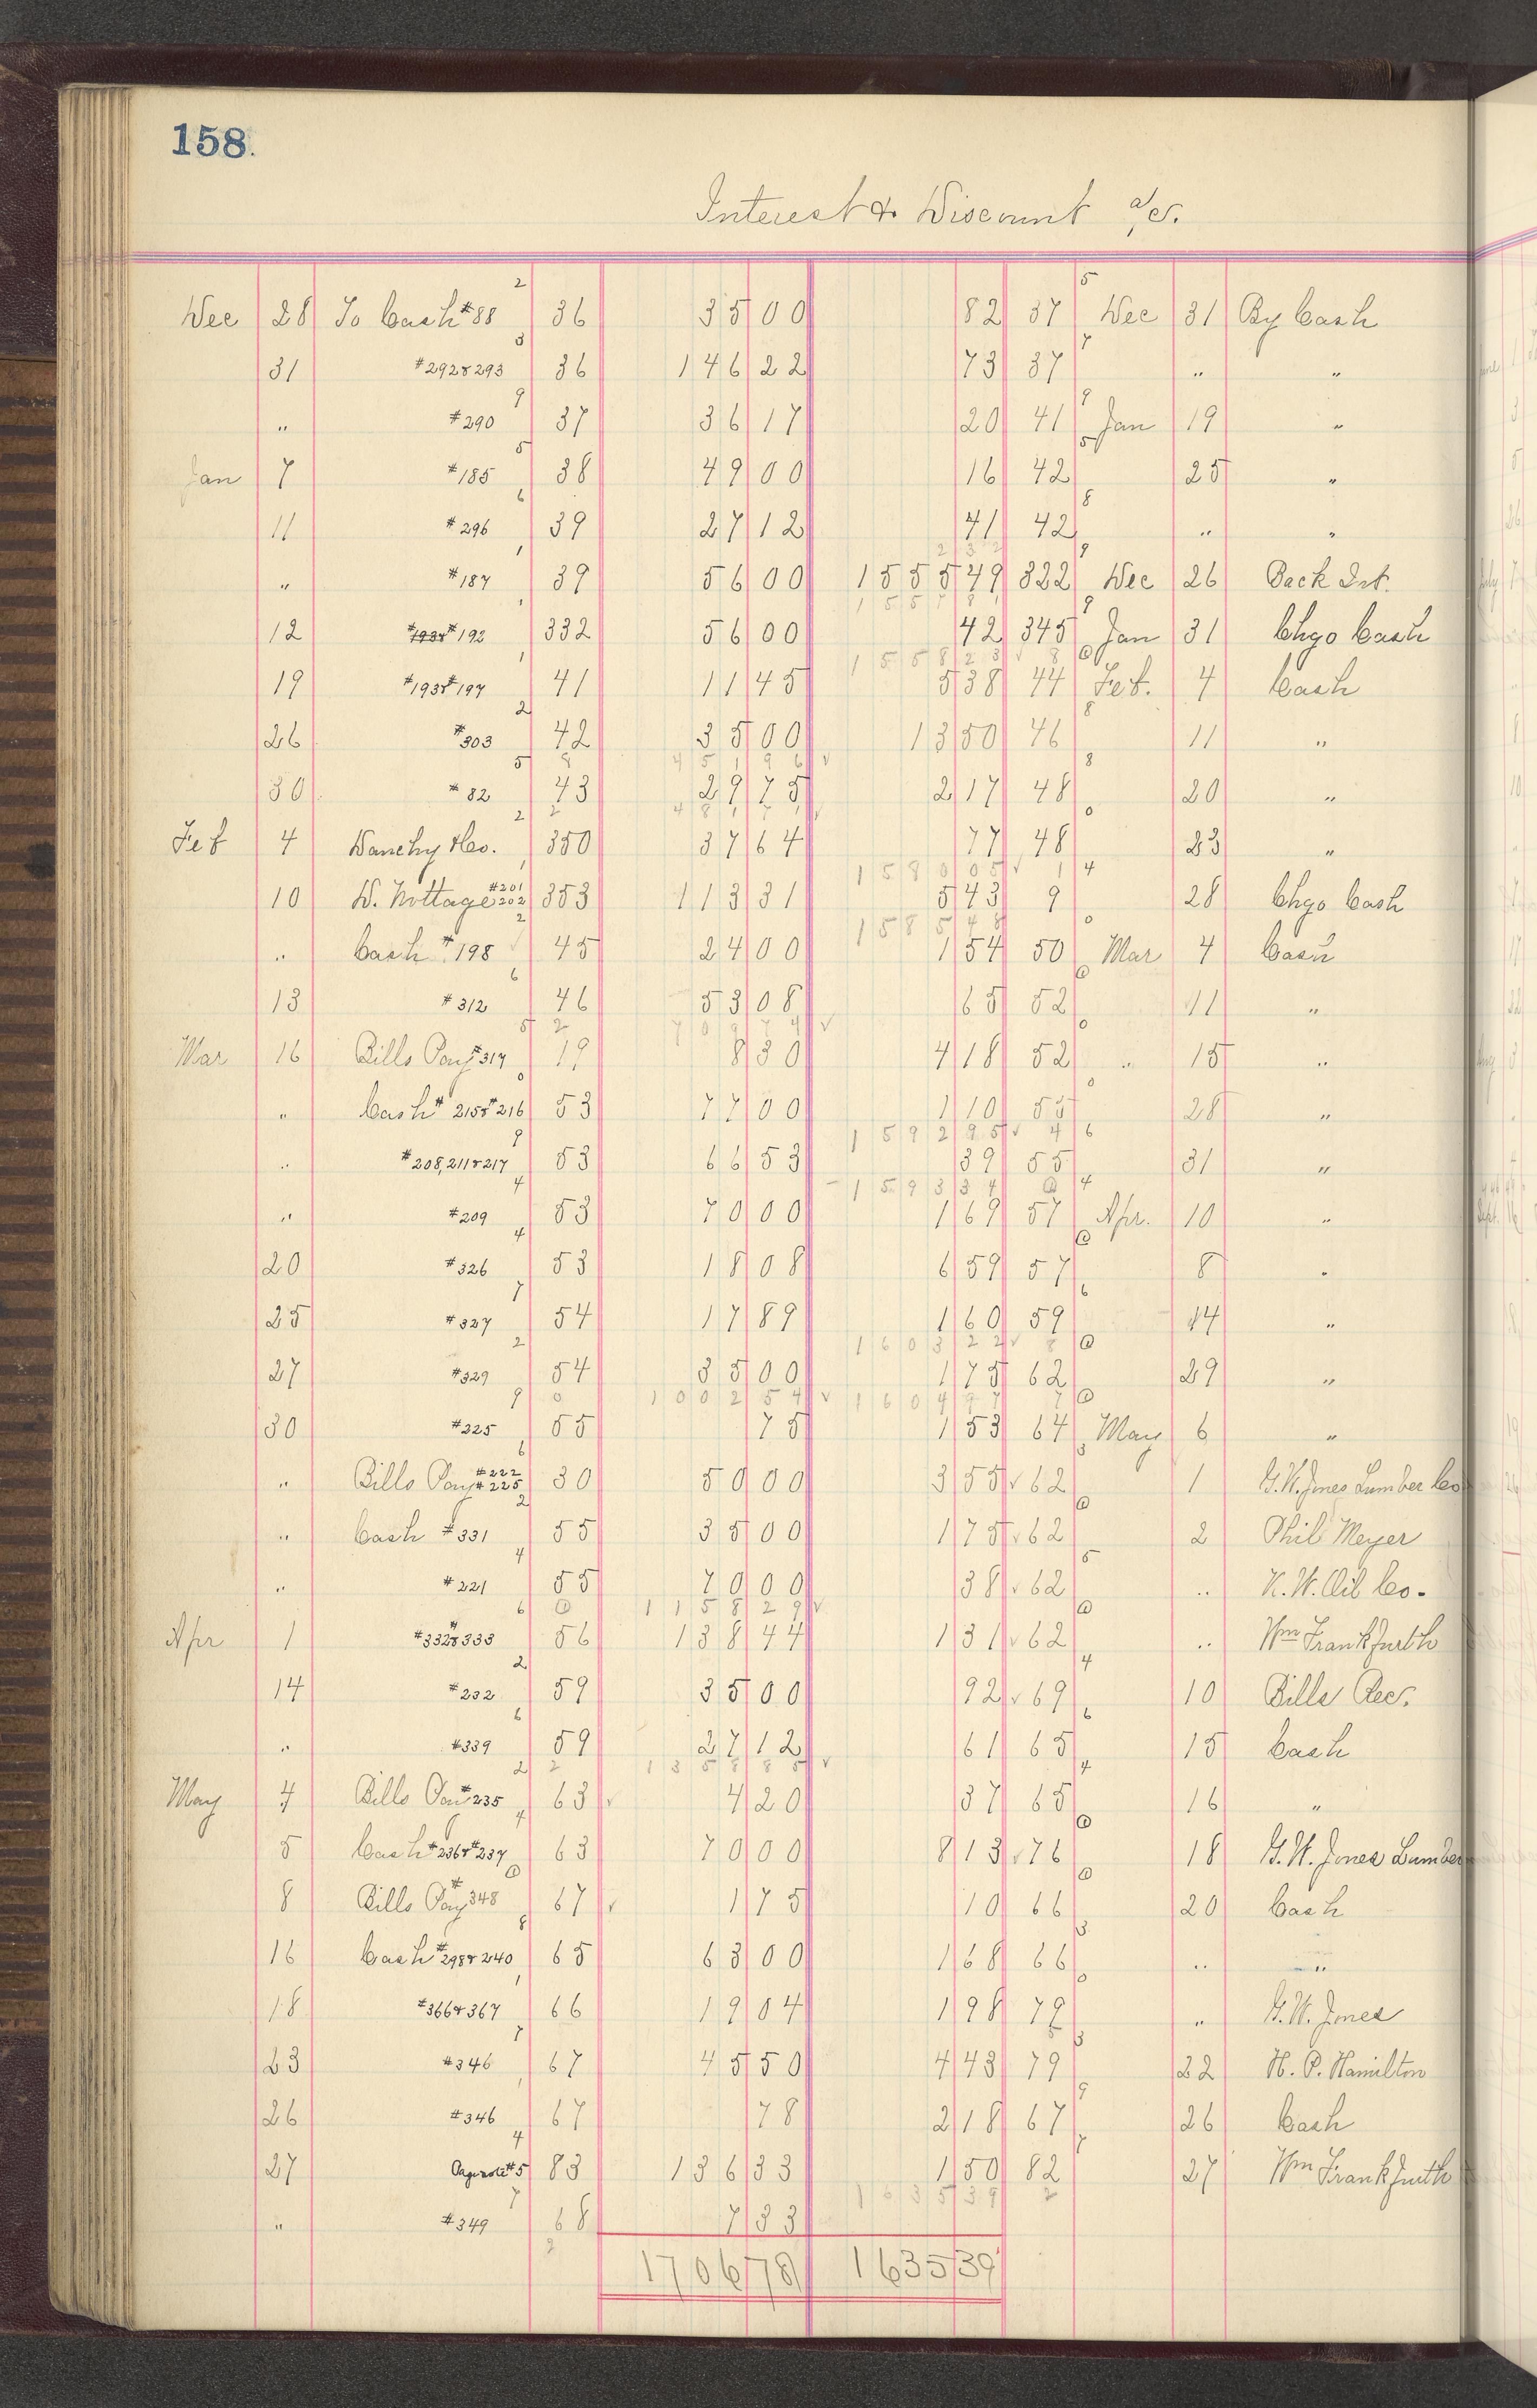 158.
Interest & Discount a/c.
Dec 28 To Cash #88 36 35 00 82 37 Dec 31 By Cash
31 #292&293 36 146 22 73 37 " "
" #290 37 36 17 20 41 Jan 19 "
Jan 7 #185 38 49 00 16 42 25 "
11 #296 39 27 12 41 42 " "
" #187 39 56 00 1555 49 322 Dec 26 Back Int.
12 #192 332 56 00 42 345 Jan 31 Chgo Cash
19 #193&#197 41 11 45 5 38 44 Feb. 4 Cash
26 #303 42 35 00 13 50 46 11 "
30 #82 43 29 75 2 17 48 20 "
Feb 4 Danchy &Co. 350 37 64 77 48 23 "
10 D. Nottage #201 202 353 113 31 5 43 9 28 Chgo Cash
" Cash #198 45 24 00 1 54 50 Mar 4 Cash
13 #312 46 53 08 65 52 11 "
Mar 16 Bills Pay #317 19 8 30 4 18 52 " 15 "
" Cash #215&#216 53 77 00 1 10 55 28 "
" #208,211&217 53 66 53 39 55 31 "
" #209 53 70 00 1 69 57 Apr. 10 "
20 #326 53 18 08 6 59 57 8 "
25 #327 54 17 89 1 60 59 14 "
27 #329 54 35 00 1 75 62 29 "
30 #225 55 75 1 53 64 May 6 "
" Bills Pay #222 #225 30 50 00 3 55 62 1 G.W. Jones Lumber Co
" Cash #331 55 35 00 1 75 62 2 Phil Meyer
" #221 55 70 00 38 62 " N.W. Oil Co.
Apr 1 #332&333 56 138 44 1 31 62 " Wm Frankfurth
14 #232 59 35 00 92 69 10 Bills Rec.
" #339 59 27 12 61 65 15 Cash
May 4 Bills Pay #235 63 4 20 37 65 16 "
5 Cash #236&#237 63 70 00 8 13 76 18 G.W. Jones Lumber
8 Bills Pay #348 67 1 75 10 66 20 Cash
16 Cash #298&240 65 63 00 1 68 66 " "
18 #366&367 66 19 04 1 98 79 " G.W. Jones
23 #346 67 45 50 4 43 79 22 H.P. Hamilton
26 #346 67 78 2 18 67 26 Cash
27 #5 83 136 33 1 50 82 27 Wm Frankfurth
" #349 68 7 33
1706 78 1635 39